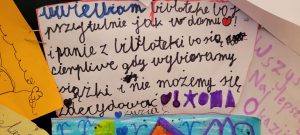 uwielbiam bibliotekę bo j
przytulnie jak w domu
i panie z biblioteki bo są
cierpliwe gdy wybieramy
książki i nie możemy się
zdecydować
Wszy
Najleps
Oka